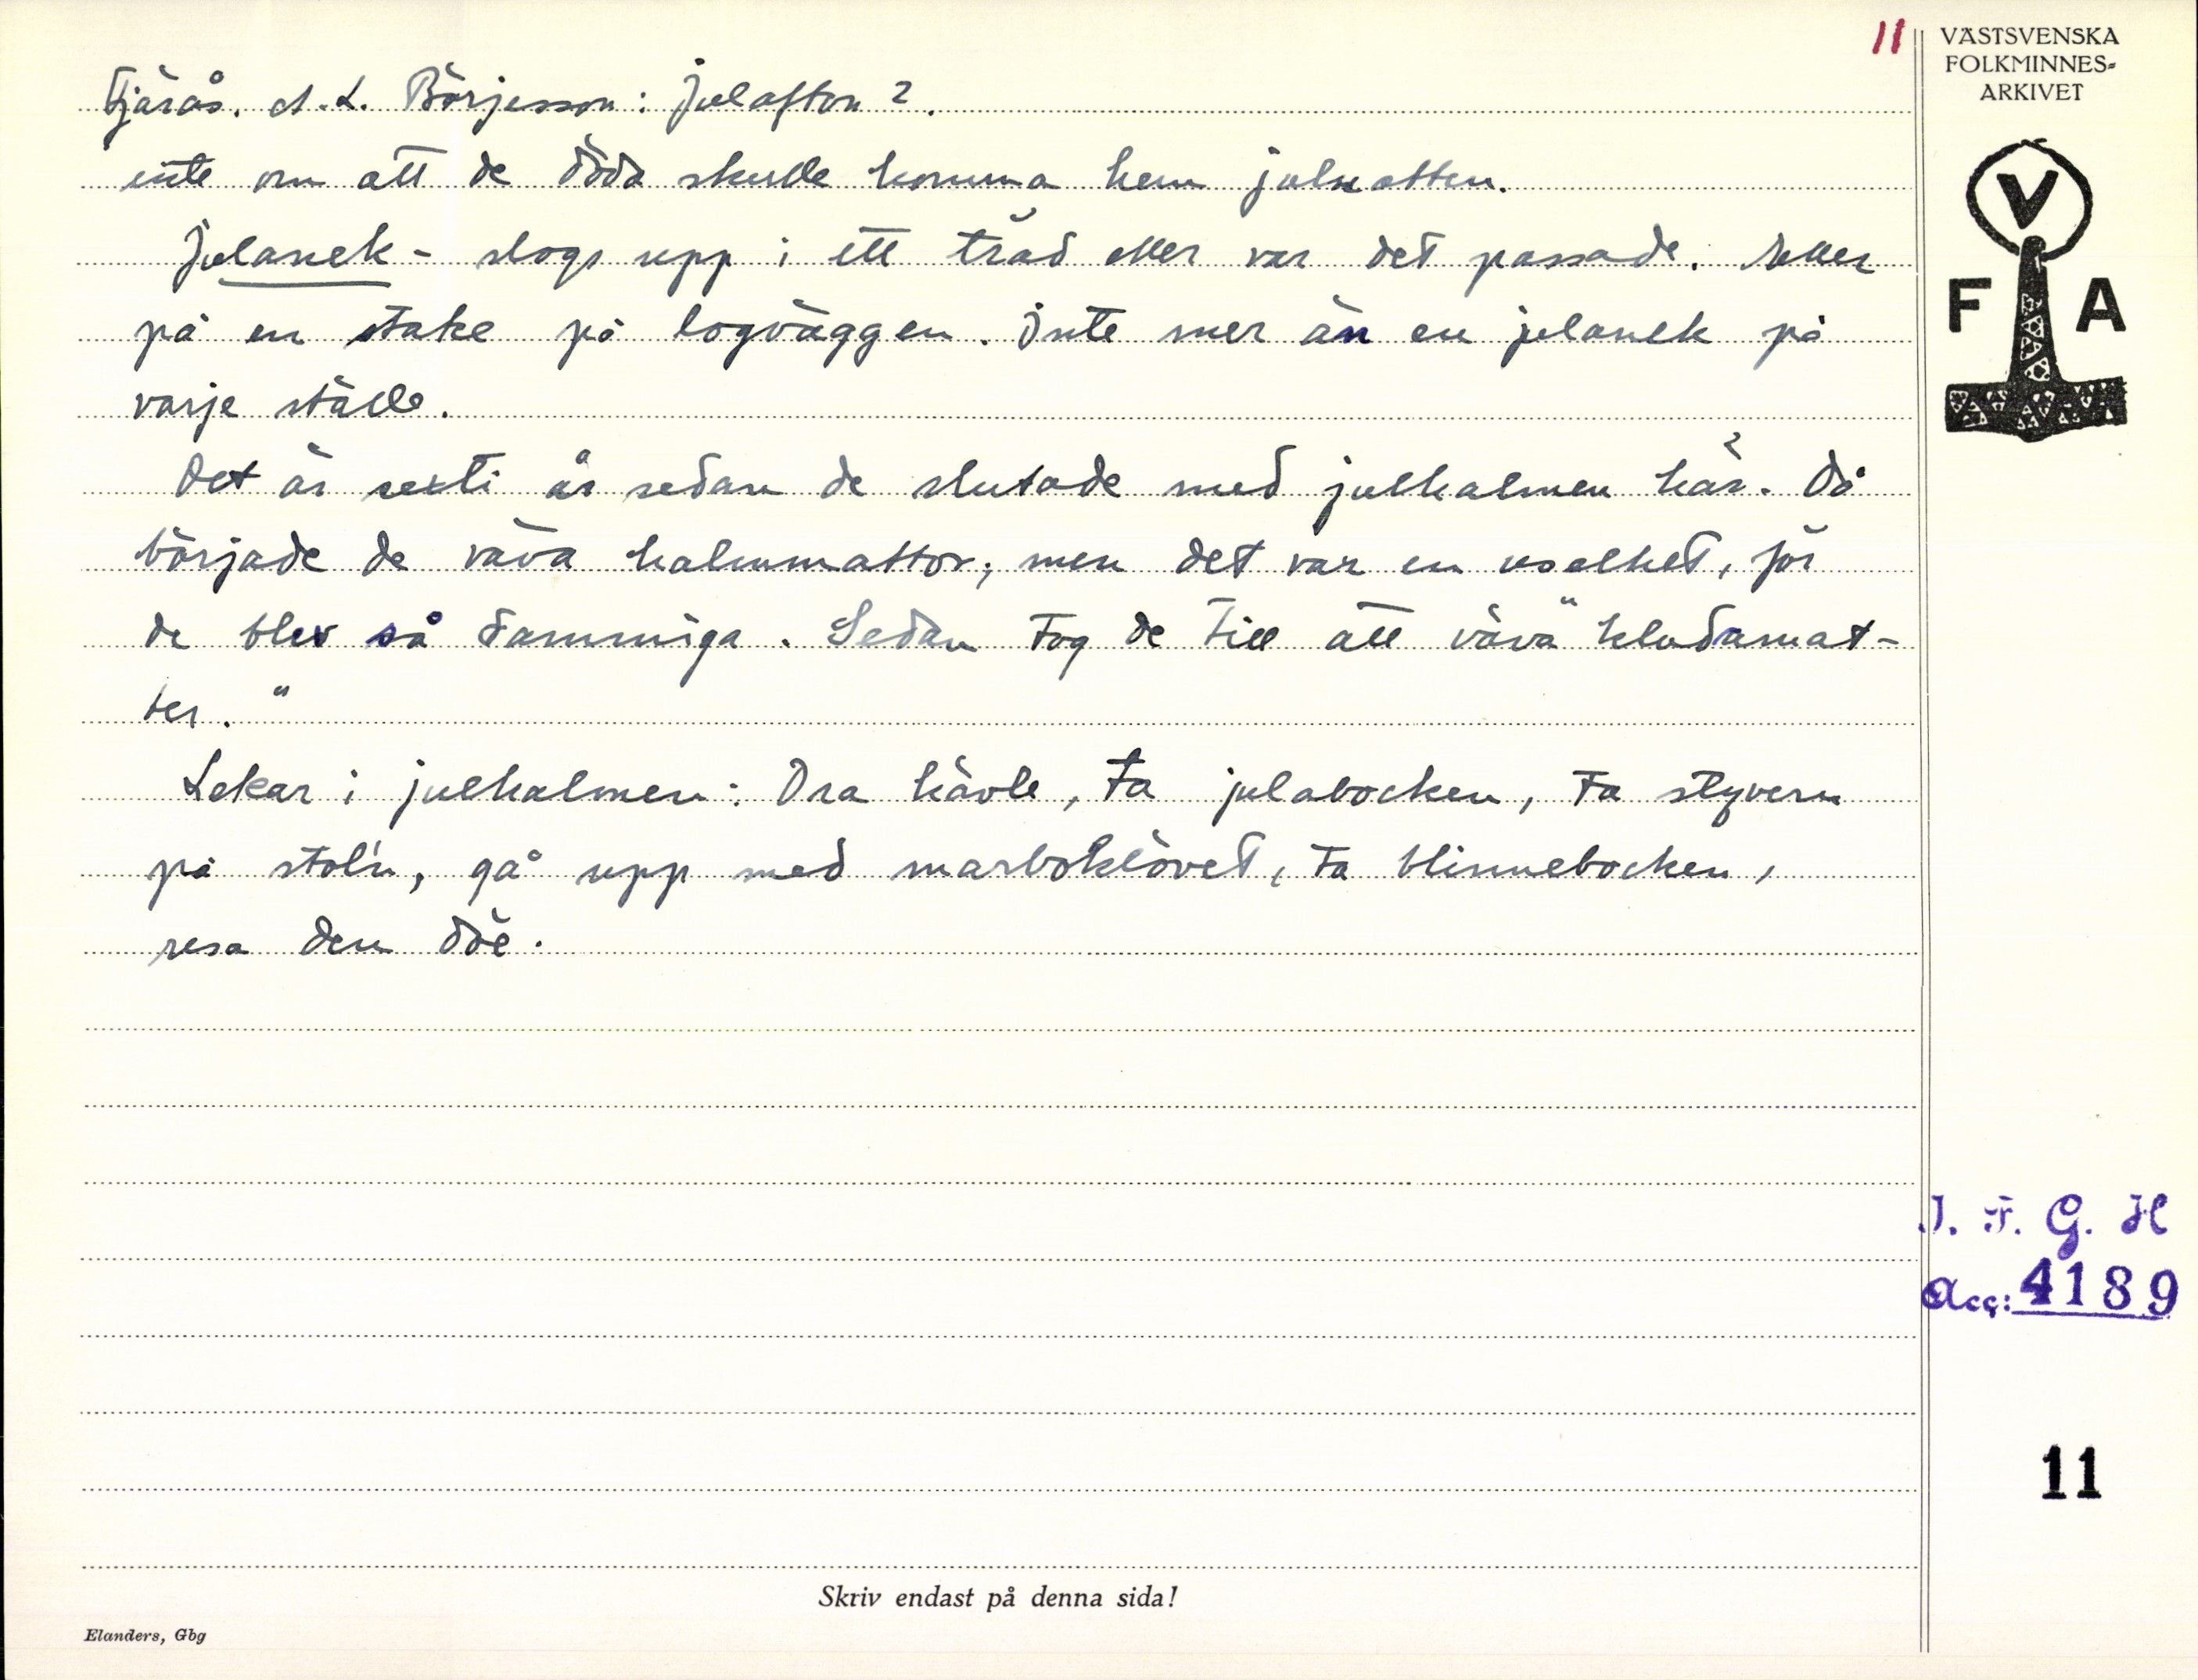 11
VÄSTSVENSKA
FOLKMINNES-
ARKIVET
Fjärås. A. L. Börjesson: Julafton 2.
inte om att de döda skulle komma hem julnatten.
Julanek - slogs upp i ett träd eller var det passade. Eller
på en stake på logväggen. Inte mer än en julanek på
varje ställe.
Det är sexti år sedan de slutade med julhalmen här. Då
började de väva halmmattor, men det var en uselhet, för
de blev så dammiga. Sedan tog de till att väva "kludamat-
ter."
Lekar i julhalmen: Dra hävle, ta julabocken, ta styvern
på stol'n, gå upp med marboklövet, ta blinnebocken,
resa den döe.
V
F A
I. F. G. H
Acc: 4189
11
Skriv endast på denna sida!
Elanders, Gbg